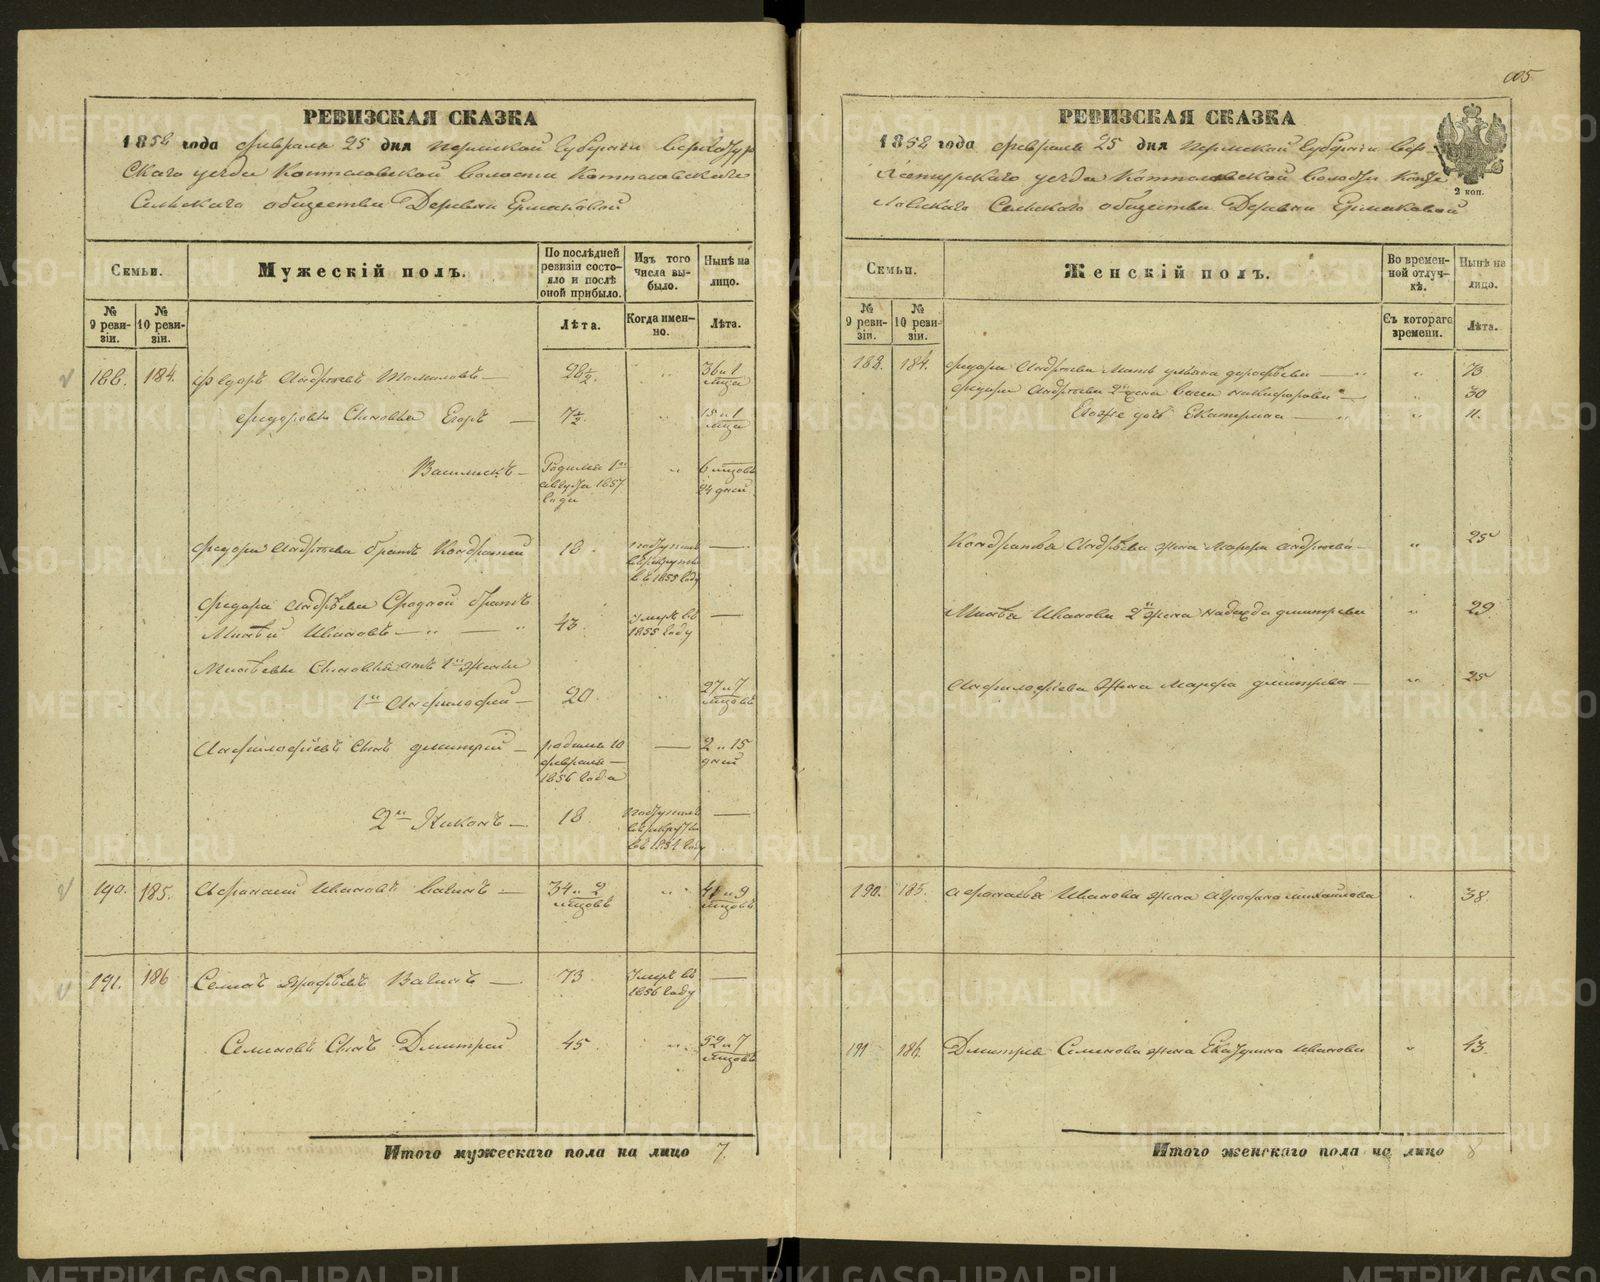 005
РЕВИЗСКАЯ СКАЗКА
1858 года февраля 25 дня Пермской Губернии Верхотур
Скаго уезда Коптеловской Волости Коптеловскаго
Сельскаго общества Деревни Ермаковой
Семьи.
Мужескій полъ.
По послѣдней ревизіи состояло и послѣ оной прибыло.
Изъ того числа выбыло.
Нынѣ на лицо.
№ 9 ревизіи.
№ 10 ревизіи.
Лѣта.
Когда именно.
Лѣта.
188. 184. Федоръ Андреевъ 28½. 36 и 1 мца
Федоровы Сыновья Егоръ 7½. 15 и 1 мца
Василискъ Родился 1го августа 1857 года 6 мцовъ 24 дней
Федора Андреева братъ Кондратій 18 поступилъ в рекруты в 1855 году
Федора Андреева Сродной братъ
Минѣй Ивановъ 43. Умеръ въ 1855 году
Минѣевы Сыновья отъ 1й жены
1й Анфилофей 20. 27 и 7 мцовъ
Анфилофіевъ Сынъ Дмитрий родился 10 февраля 1856 года 2 и 15 дней
2й Никонъ 18. поступилъ въ рекруты въ 1854 году
190. 185. Афонасий Ивановъ Вагинъ 34 и 2 мцовъ 41 и 9 мцовъ
191. 186 Семенъ Дорофѣевъ Вагинъ 73 Умеръ въ 1856 году
Семеновъ Сынъ Дмитрий 45 52 и 7 мцовъ
Итого мужескаго пола на лицо 7.
РЕВИЗСКАЯ СКАЗКА
1858 года февраля 25 дня Пермской Губернии Вер-
хотурскаго уезда Коптеловской Волости Копте
ловскаго Сельскаго общества Деревни Ермаковой
2 коп.
Семьи.
Женскій полъ.
Во временной отлучкѣ.
Нынѣ на лицо.
№ 9 ревизіи.
№ 10 ревизіи.
Съ котораго времени.
Лѣта.
188. 184. Федора Андреева Мать Ульяна Дорофѣева 73
Федора Андреева 2я жена Васса Никифорова 30
Егоже дочь Екатерина 11.
Кондратья Андрѣева жена Марфа Андреева 25
Минѣя Иванова 2я жена Надежда Дмитрева 29
Анфилофіева жена Марфа Дмитрева 25
190. 185. Афонасья Иванова жена Афросинья Михайлова 38.
191 186. Дмитрея Семенова жена Екатерина Иванова 43.
Итого женскаго пола на лицо 8
METRIKI.GASO-URAL.RU